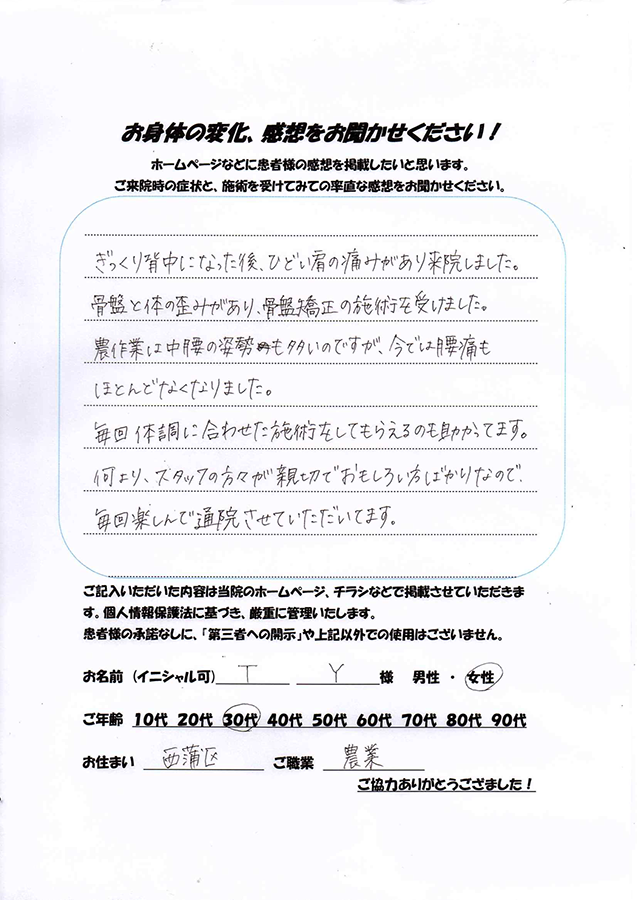 お身体の変化、感想をお聞かせください！
ホームページなどに患者様の感想を掲載したいと思います。
ご来院時の症状と、施術を受けてみての率直な感想をお聞かせください。
ぎっくり背中になった後、ひどい肩の痛みがあり来院しました。
骨盤と体の歪みがあり、骨盤矯正の施術を受けました。
農作業は中腰の姿勢も多いのですが、今では腰痛も
ほとんどなくなりました。
毎回体調に合わせた施術をしてもらえるのも助かってます。
何より、スタッフの方々が親切でおもしろい方ばかりなので、
毎回楽しんで通院させていただいてます。
ご記入いただいた内容は当院のホームページ、チラシなどで掲載させていただきま
す。個人情報保護法に基づき、厳重に管理いたします。
患者様の承諾なしに、「第三者への開示」や上記以外での使用はございません。
お名前（イニシャル可） T Y 様 男性・女性
ご年齢 10代 20代 30代 40代 50代 60代 70代 80代 90代
お住まい 西蒲区 ご職業 農業
ご協力ありがとうござました！